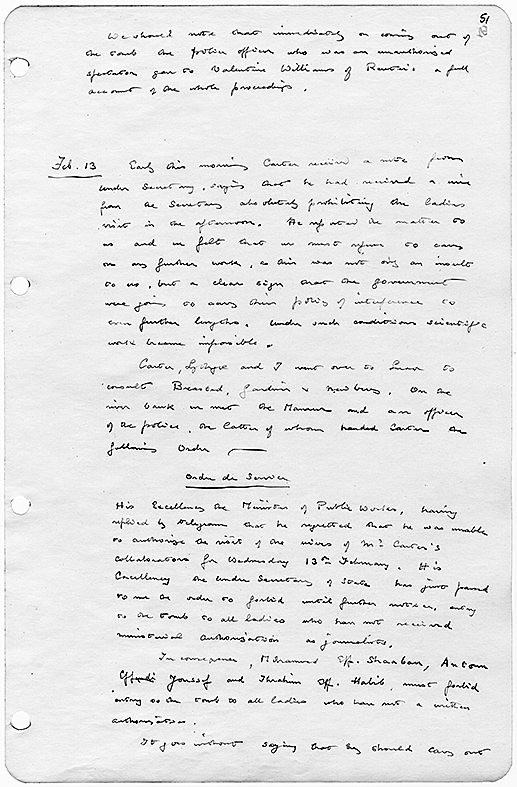 51
We should note that immediately on coming out of
the tomb the police officer who was an unauthorised
spectator gave to Valentine Williams of Reuter's a full
account of the whole proceedings.
Feb. 13 Early this morning Carter received a note from
under Secretary, saying that he had received a wire
from the Secretary absolutely prohibiting the ladies
visit in the afternoon. He reported the matter to
us and we felt that we must refuse to carry
on any further work, as this was not only an insult
to us, but a clear sign that the government
were going to carry their policy of interference to
even further lengths. Under such conditions scientific
work became impossible.
Carter, Lythgoe and I went over to Luxor to
consult Breasted, Gardiner & Newberry. On the
river bank we met the Mamur and an officer
of the police, the latter of whom handed Carter the
following Order
Ordre de Service
His Excellency the Minister of Public Works, having
replied by telegram that he regretted that he was unable
to authorise the visit of the wives of Mr Carter's
collaborators for Wednesday 13th February. His
Excellency the under Secretary of State has just passed
to me the order to forbid until further notice, entry
to the tomb to all ladies who have not received
ministerial authorisation as journalists.
In consequence, Mohamed Eff. Shaaban, Antoun
Effendi Youssef and Ibrahim Eff. Habib, must forbid
entry to the tomb to all ladies who have not a written
authorisation.
It goes without saying that they should carry out